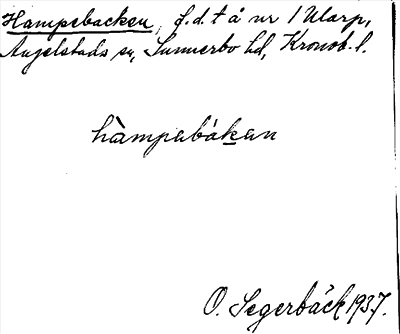 Hampebacken, f.d. t å nr 1 Ularp,
Angelstads sn, Sunnerbo hd, Kronob. l.
hàmpabákan
O. Segerbäck 1937.